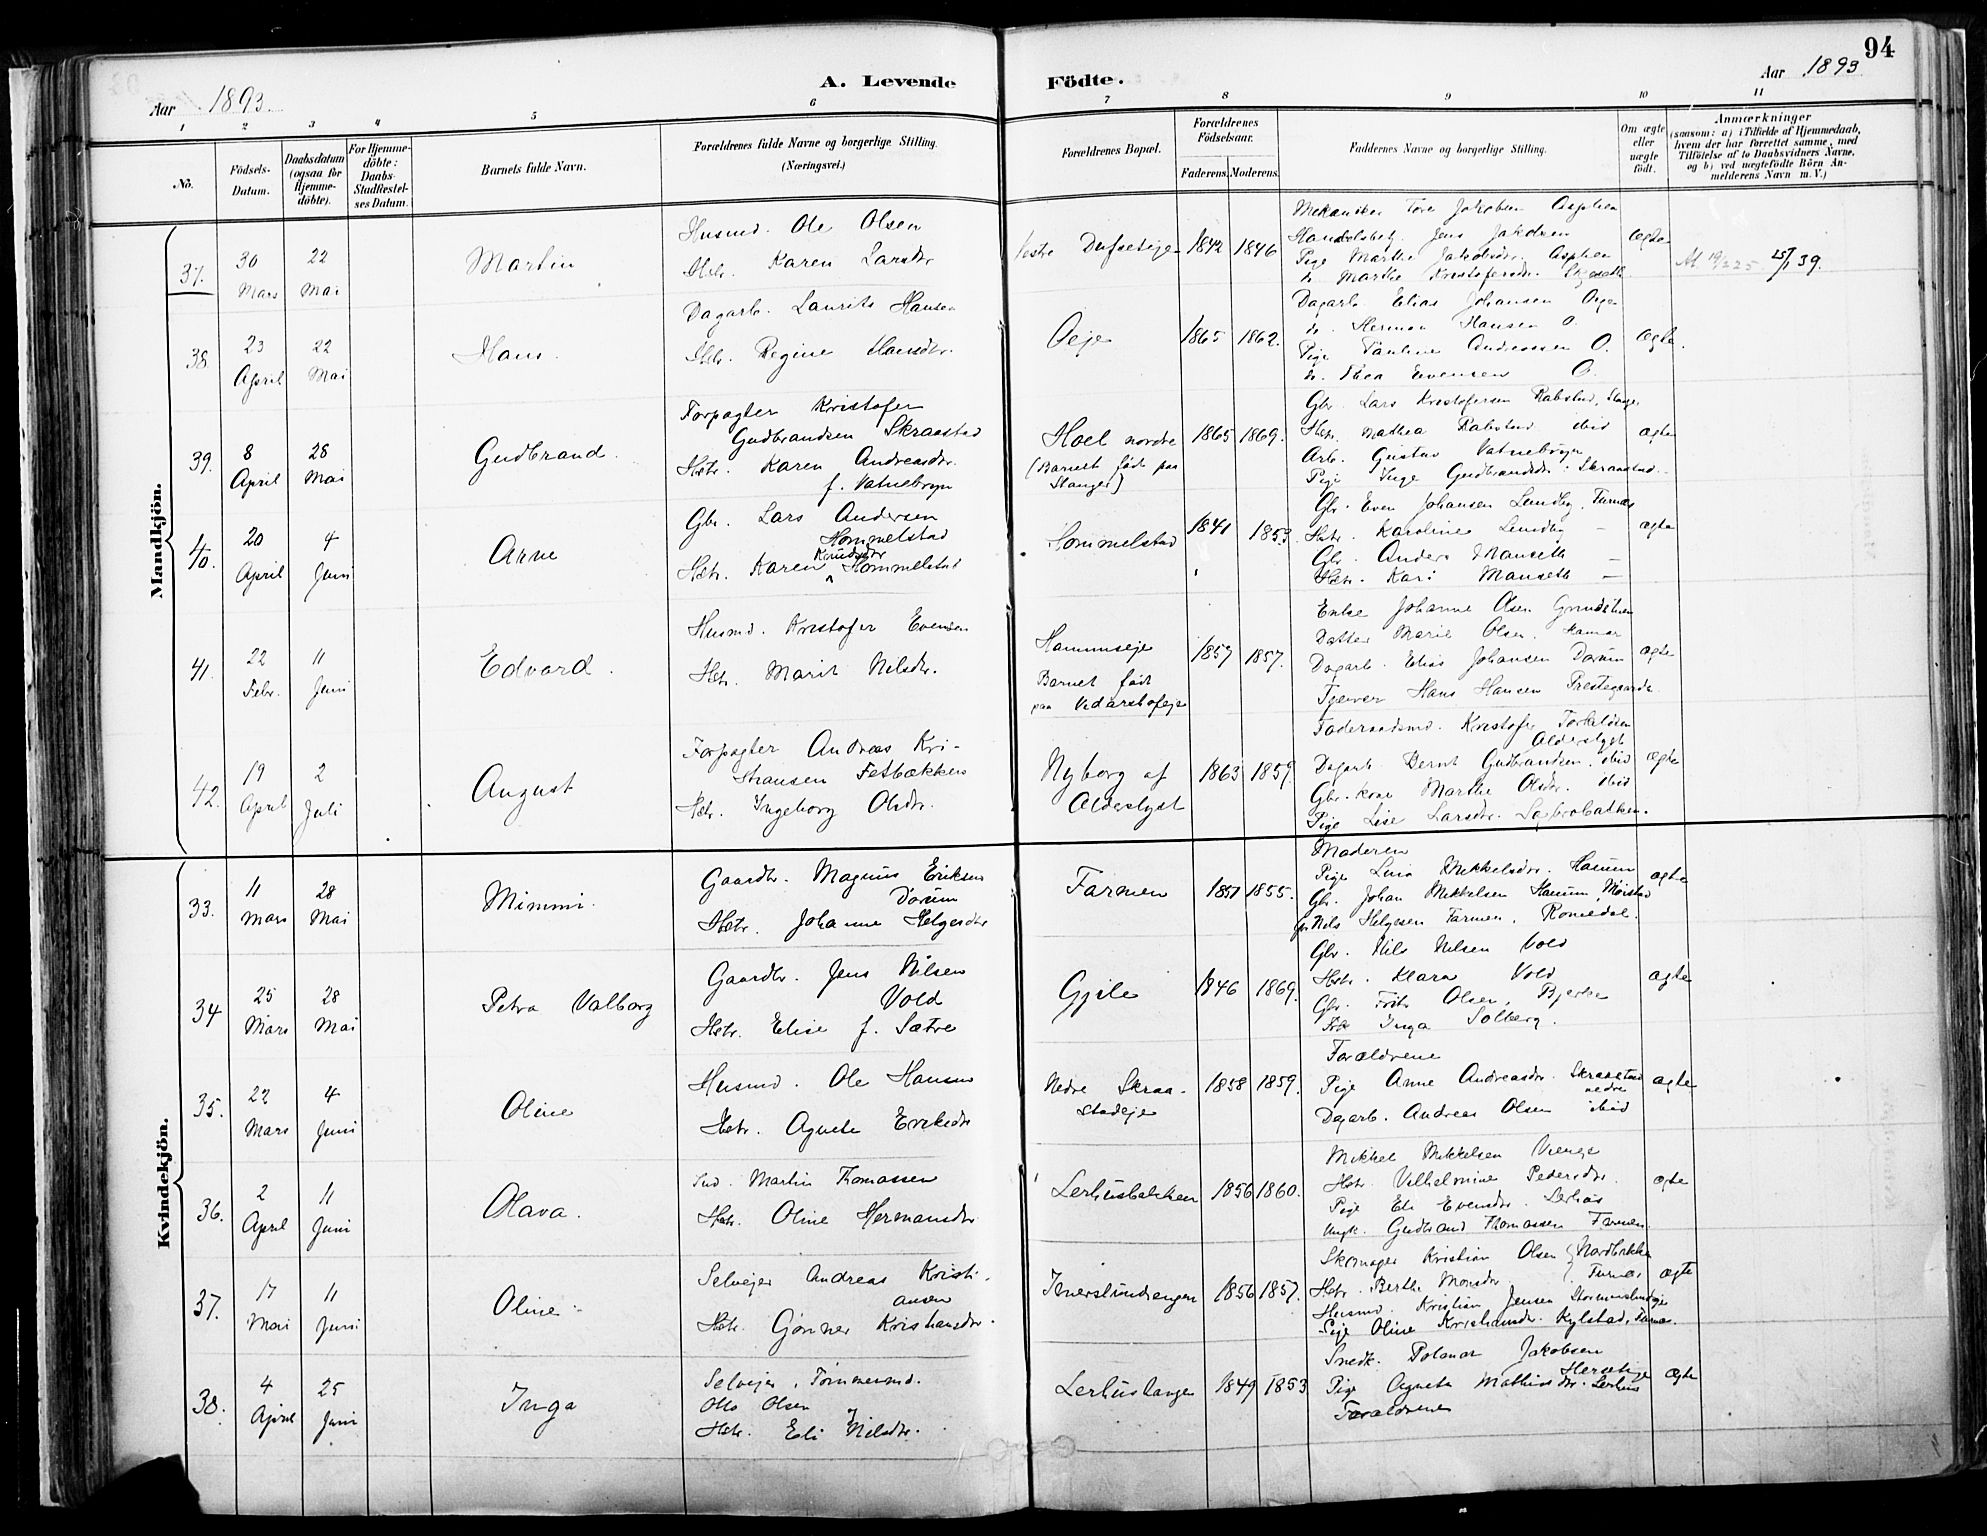 94
Aar 1893.
A. Levende Födte.
Aar 1893
1 2 3 4 5 6 7 8 9 10 11
No.
Födsels-Datum.
Daabsdatum (ogsaa for Hjemme-döbte).
For Hjemme-döbte: Daabs-Stadfæstel-ses Datum.
Barnets fulde Navn.
Forældrenes fulde Navne og borgerlige Stilling. (Næringsvei.)
Forældrenes Bopæl.
Forældrenes Födselsaar.
Faderens. Moderens.
Faddernes Navne og borgerlige Stilling.
Om ægte eller uægte født.
Anmærkninger
(saasom: a) i Tilfælde af Hjemmedaab,
hvem der har forrettet samme, med
Tilföielse af to Daabsvidners Navne,
og b) ved uægtefödte Börn An-
melderens Navn m. V.)
Mandkjön.
37. 30 Mars 22 Mai
Martin
Husmd. Ole Olsen
Hstr. Karen Larsdr
1842 1846
Mekaniker Tore Jakobsen
Jens Jakobsen
Pige Marthe Jakobsdr.
Marthe Kristofersdr.
ægte
25/1 39.
38. 23 April 22 Mai
Hans.
Dagarb. Laurits Hansen
Hstr. Regine Hansdtr.
Oeje
1865 1862.
Dagarb. Elias Johansen
do. Herman Hansen O.
Pige Pauline Andreassen O.
do. Thea Evensen O.
ægte.
39. 8 April 28 Mai
Gudbrand.
Forpagter Kristofer
Gudbrandsen Skraastad
Hstr. Karen Andreasdr.
f. Vatnebryn
Hoel nordre
(Barnet født paa
Stange)
1865 1869.
Gbr. Lars Kristofersen Rabstad, Stange
Hstr. Mathea Rabstad ibid
Arb. Gustav Vatnebryn
Pige Inge Gudbrandsdr. Skraastad
ægte
40. 20 April 4 Juni
Arne
Gbr. Lars Andersen
Hommelstad
Hstr. Karen Knudsdr Hommelstad
Hommelstad
1841 1853.
Gbr. Even Johansen Lundby, Furnæs
Hstr. Karoline Lundby —
Gbr. Anders Manseth —
Hstr. Kari Manseth —
ægte
41. 22 Febr. 11 Juni
Edvard.
Husmd. Kristofer Evensen
Hstr. Marit Nilsdr.
Hammseje
Barnet født
paa Vidarshofeje
1857 1857.
Enke Johanne Olsen
Datter Marie Olsen. Hamar
Dagarb. Elias Johansen Dorum
Tjener Hans Hansen Prestegaarden
ægte
42. 19 April 2 Juli
August
Forpagter Andreas Kri-
stiansen Fetbækken
Hstr. Ingeborg Olsdr.
Nyborg af
Alderslyst
1863 1859.
Føderaadsmd. Kristofer Torkildsen
Alderslyst
Dagarb. Bernt Gudbrandsen. ibid
Gbr. kone Marthe Olsdr. ibid
Pige Lise Larsdr.
ægte
Kvindekjön.
33. 11 Mars 28 Mai
Mimmi.
Gaardbr. Magnus Eriksen
Dorum
Hstr. Johanne Helgesdtr
Farmen
1857 1855.
Moderen
Pige Lina Mikkelsdr.
Gbr. Johan Mikkelsen
Nils Helgesen Farmen, Romedal.
ægte
34 25 Mars 28 Mai
Petra Valborg
Gaardbr. Jens Nilsen
Vold
Hstr. Elise f. Sætre
Gjile
1846 1869.
Gbr. Nils Nilsen Vold
Hstr. Klara Vold
Gbr. Frits Olsen, Bjerke
Frk Inga Solberg.
ægte
35. 22 Mars 4 Juni
Oline
Husmd. Ole Hansen
Hstr. Agnete Eriksdr
Nedre Skraa-
stadeje
1858 1859.
Forældrene
Pige Anne Andreasdr. Skraastad
nedre
Dagarb. Andreas Olsen ibid
ægte
36. 2 April 11 Juni
Olava.
Martin Thomassen
Hstr. Oline Hermansdr
Lerhusbakken
1856 1860.
Mikkel Mikkelsen
Hstr. Vilhelmine Pedersdr.
Pige Eli Evensdr. Lerhus
Ungk. Gudbrand Thomassen Farmen.
ægte
37. 17 Mai 11 Juni
Oline
Selvejer Andreas Kristi-
ansen
Hstr. Gønner Kristiansdr.
1856 1857.
Skomager Kristian Olsen
Hstr. Berthe Monsdr Furnæs
Husmd. Kristian Jensen
Pige Oline Kristiansdr. Kylstad, Furnæs.
ægte
38. 4 April 25 Juni
Inga
Selvejer, Tømmermd.
Otto Olsen
Hstr. Eli Nilsdr.
Lerhushaugen
1849 1853
Snedk. Jakobsen
Pige Agnete Mathisdr. Lerhus
Forældrene
ægte